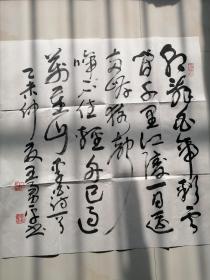 朝辞白帝彩云
间千里江陵一日还
两岸猿声
啼不住轻舟已过
万重山 李白诗一首
乙未仲夏